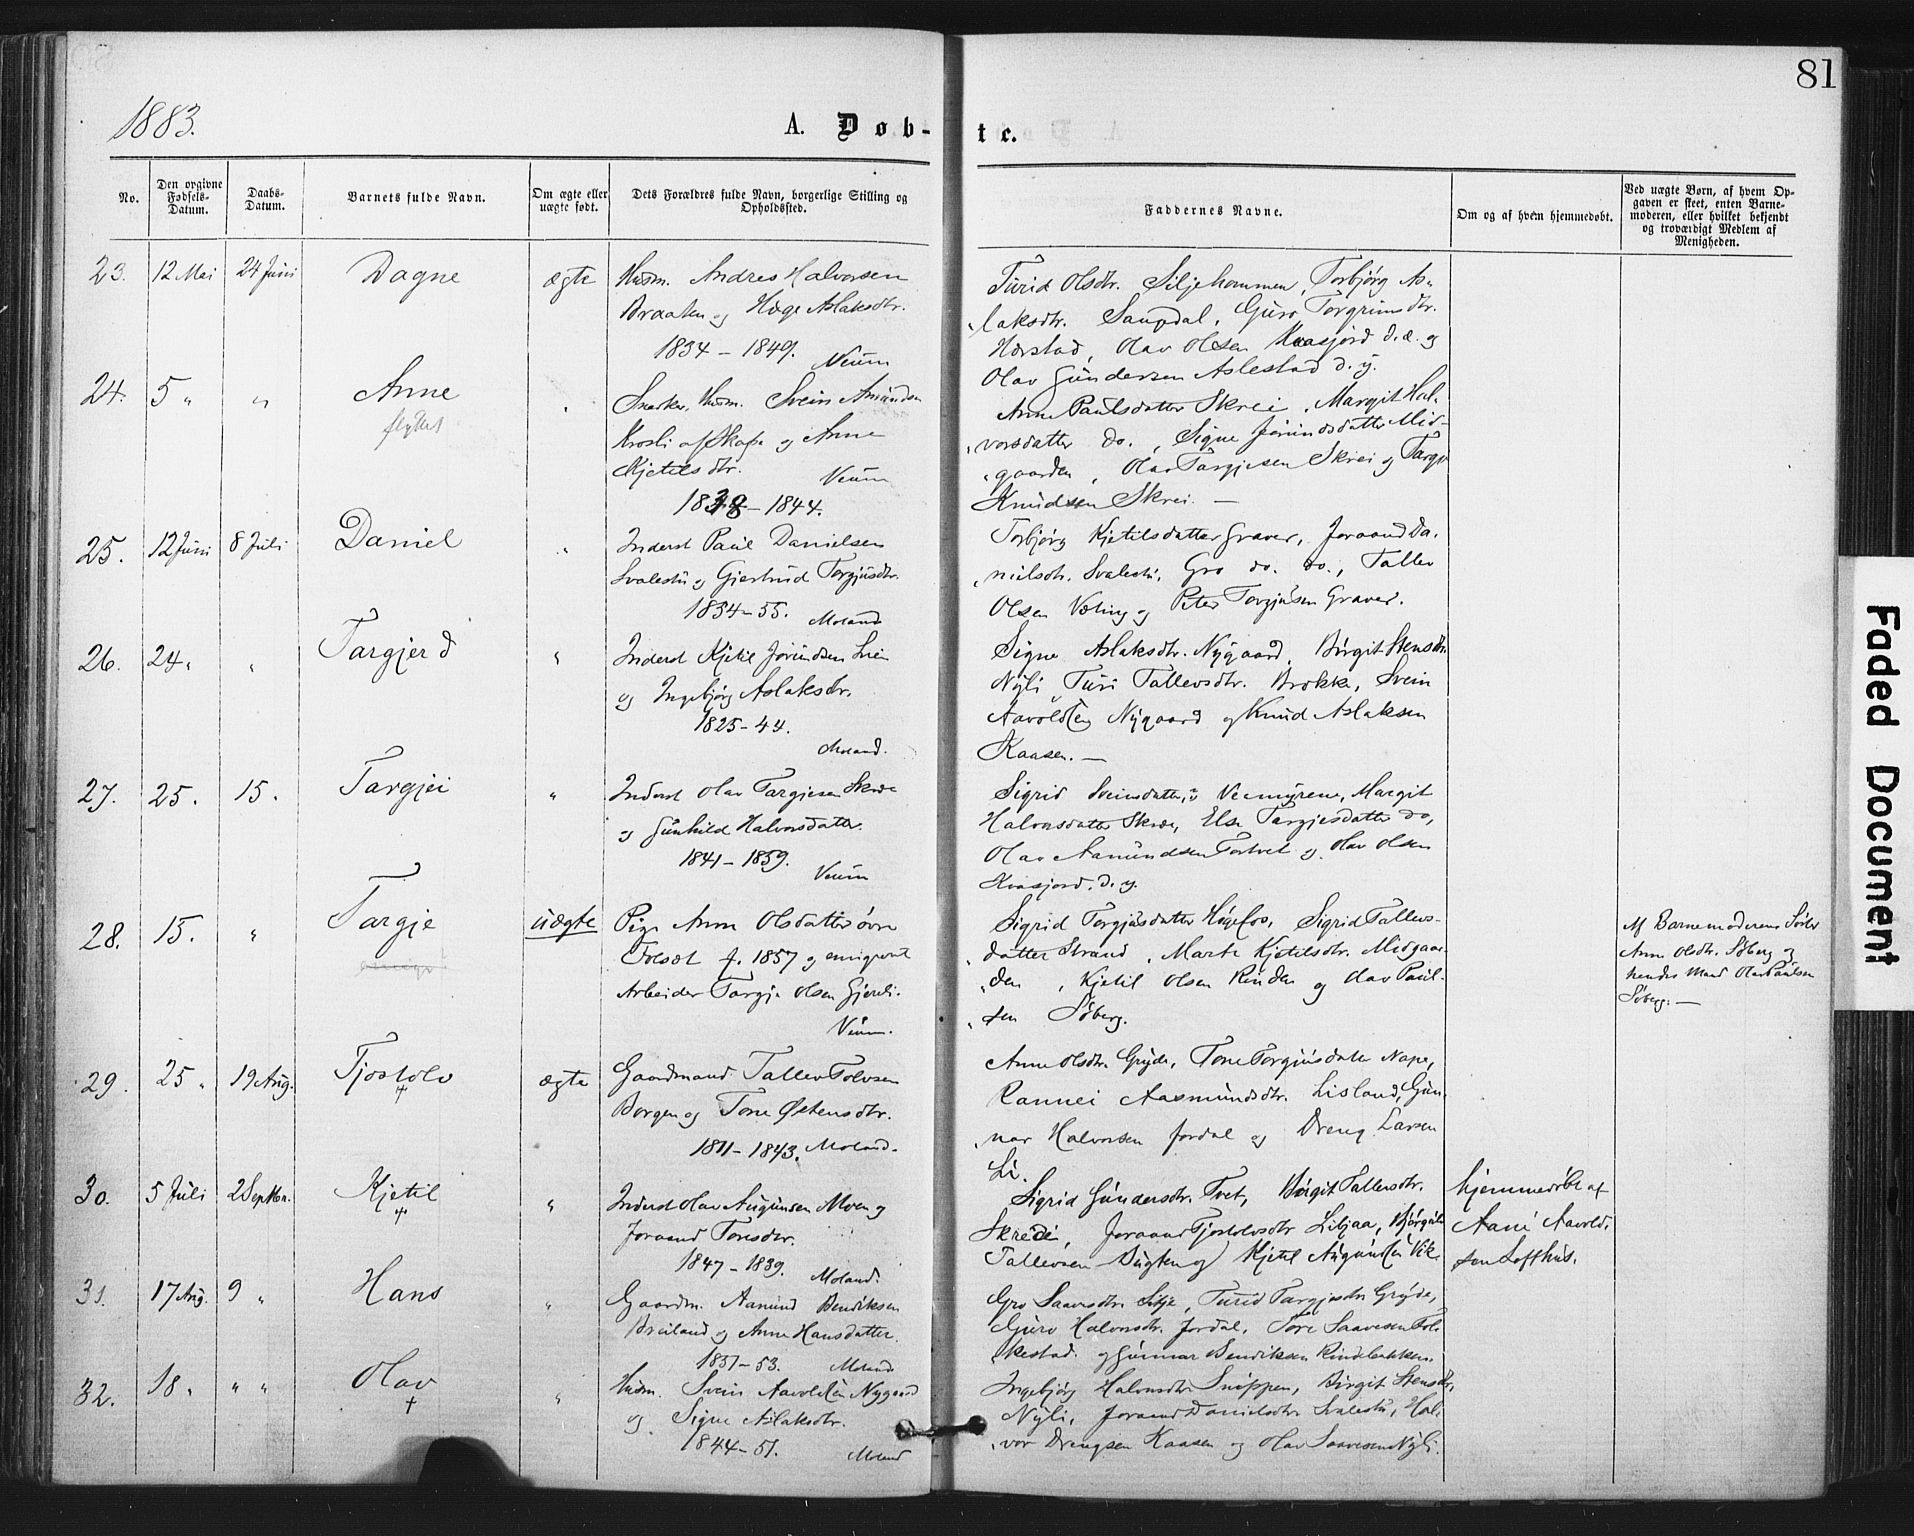 81
1883.
A. Døb-
te.
No.
Den opgivne Fødsels-Datum.
Daabs-Datum.
Barnets fulde Navn.
Om ægte eller uægte født.
Dets Forældres fulde Navn, borgerlige Stilling og Opholdssted.
Faddernes Navne.
Om og af hvem hjemmedøbt.
Ved uægte Børn, af hvem Op-
gaven er skeet, enten Barne-
moderen, eller hvilket bekjendt
og troværdigt Medlem af
Menigheden.
23. 12 Mai 24 Juni Dagne ægte Husm. Andres Halvorsen
Braaten og Hæge Aslaksdtr.
1834 - 1849. Veum
Turid Olsdtr. Siljehommen, Torbjørg As-
laksdtr. Saupdal, Guro Torgrimsdtr.
Hørstad, Olav Olsen Kvasjord d.æ. og
Olav Gundersen Aslestad d. y.
24. 5 " " Anne
flyttet
Snedker, Husm. Svein Amundsen
Krosli af Skafse og Anne
Kjetilsdtr. Veum
- 1844.
Anne Paulsdatter Skrei, Margit Hal-
vorsdatter do., Signe Jørundsdatter Mid-
gaarden, Olav Targjesen Skrei og Targe
Knudsen Skrei. —
25. 12 Juni 8 Juli Daniel " Inderst Paul Danielsen
Svalestu og Gjertrud Torgjusdtr.
1834 - 55. Moland
Torbjørg Kjetilsdatter Graver, Joraand Da-
nielsdtr. Svalestu, Gro do. do., Tallev
Olsen Væting og Peter Torgjusen Graver.
26. 24 " " Targjerd " Inderst Kjetil Jørundsen
og Ingebjørg Aslaksdtr.
1825 - 44.
Moland.
Signe Aslaksdtr. Nygaard, Birgit Stensdtr.
Nyli, Turi Tallevsdtr. Brokke, Svein
Aavoldsen Nygaard og Knud Aslaksen
Kaasen. —
27. 25. 15. Targjei " Inderst Olav Targjesen Skrede
og Gunhild Halvorsdatter.
1841 - 1859. Veum
Sigrid Sveinsdatter, Veumyrene, Margit
Halvorsdatter Skrede, Else Targjesdatter do,
Olav Aamundsen Tortvet og Olav Olsen
Kvasjord. d. y.
28. 15. " Targje uægte Pige Anne Olsdatter øvre
Tolsæt f. 1857 og emigreret
Arbeider Targje Olsen Gjerdi.
Veum.
Sigrid Torgjusdatter Høgefos, Sigrid Tallevs-
datter Strand, Marte Kjetilsdtr. Midgaar-
den, Kjetil Olsen Rinden og Olav Paul-
sen Søberg.
Af Barnemoderens Søster
Anne Olsdtr. Søberg og
hendes Mand Olav Paulsen
Søberg. —
29. 25 " 19 Aug. Tjostolv ægte Gaardmand Tallev Tolvsen
+
Borgen og Tone Østensdtr.
- 1843. Moland.
Anne Olsdtr. Gryde, Tone Torgjusdatter Nape,
Rannei Aasmundsdtr. Lisland, Gun-
nar Halvorsen Jordal og Dreng Larsen
Li.
30. 5 Juli 2 Septbr. Kjetil " Inderst Olav Augunsen Moen og
+
Joraand Toresdtr.
1847 - 1839. Moland.
Sigrid Gundersdtr. Tvet, Birgit Tallevsdtr.
Skredi, Joraand Tjostolvsdtr Liljaa, Bjørgulv
Tallevsen Bugten og Kjetil Augundsen Vik.
hjemmedøbt af
Aani Aavold-
sen Lofthus.
31. 17 Aug. 9 " Hans " Gaardm. Aamund Bendiksen
Breiland og Anne Hansdatter.
- 53. Moland
Gro Saavesdtr Silje, Turid Targjesdtr Gryde,
Guro Halvorsdtr. Jordal, Tore Saavesen Fol-
kestad og Gunnar Bendiksen Rindebakken.
32. 18 " " " Olav " Husm. Svein Aavoldsen Nygaard
+
og Signe Aslaksdtr.
1844 - 51. Moland
Ingebjørg Halvorsdtr Snippen, Birgit Stensdtr,
Nyli, Joraand Danielsdtr Svalestu, Hal-
vor Drengsen Kaasen og Olav Saavesen Nyli.
Faded Document